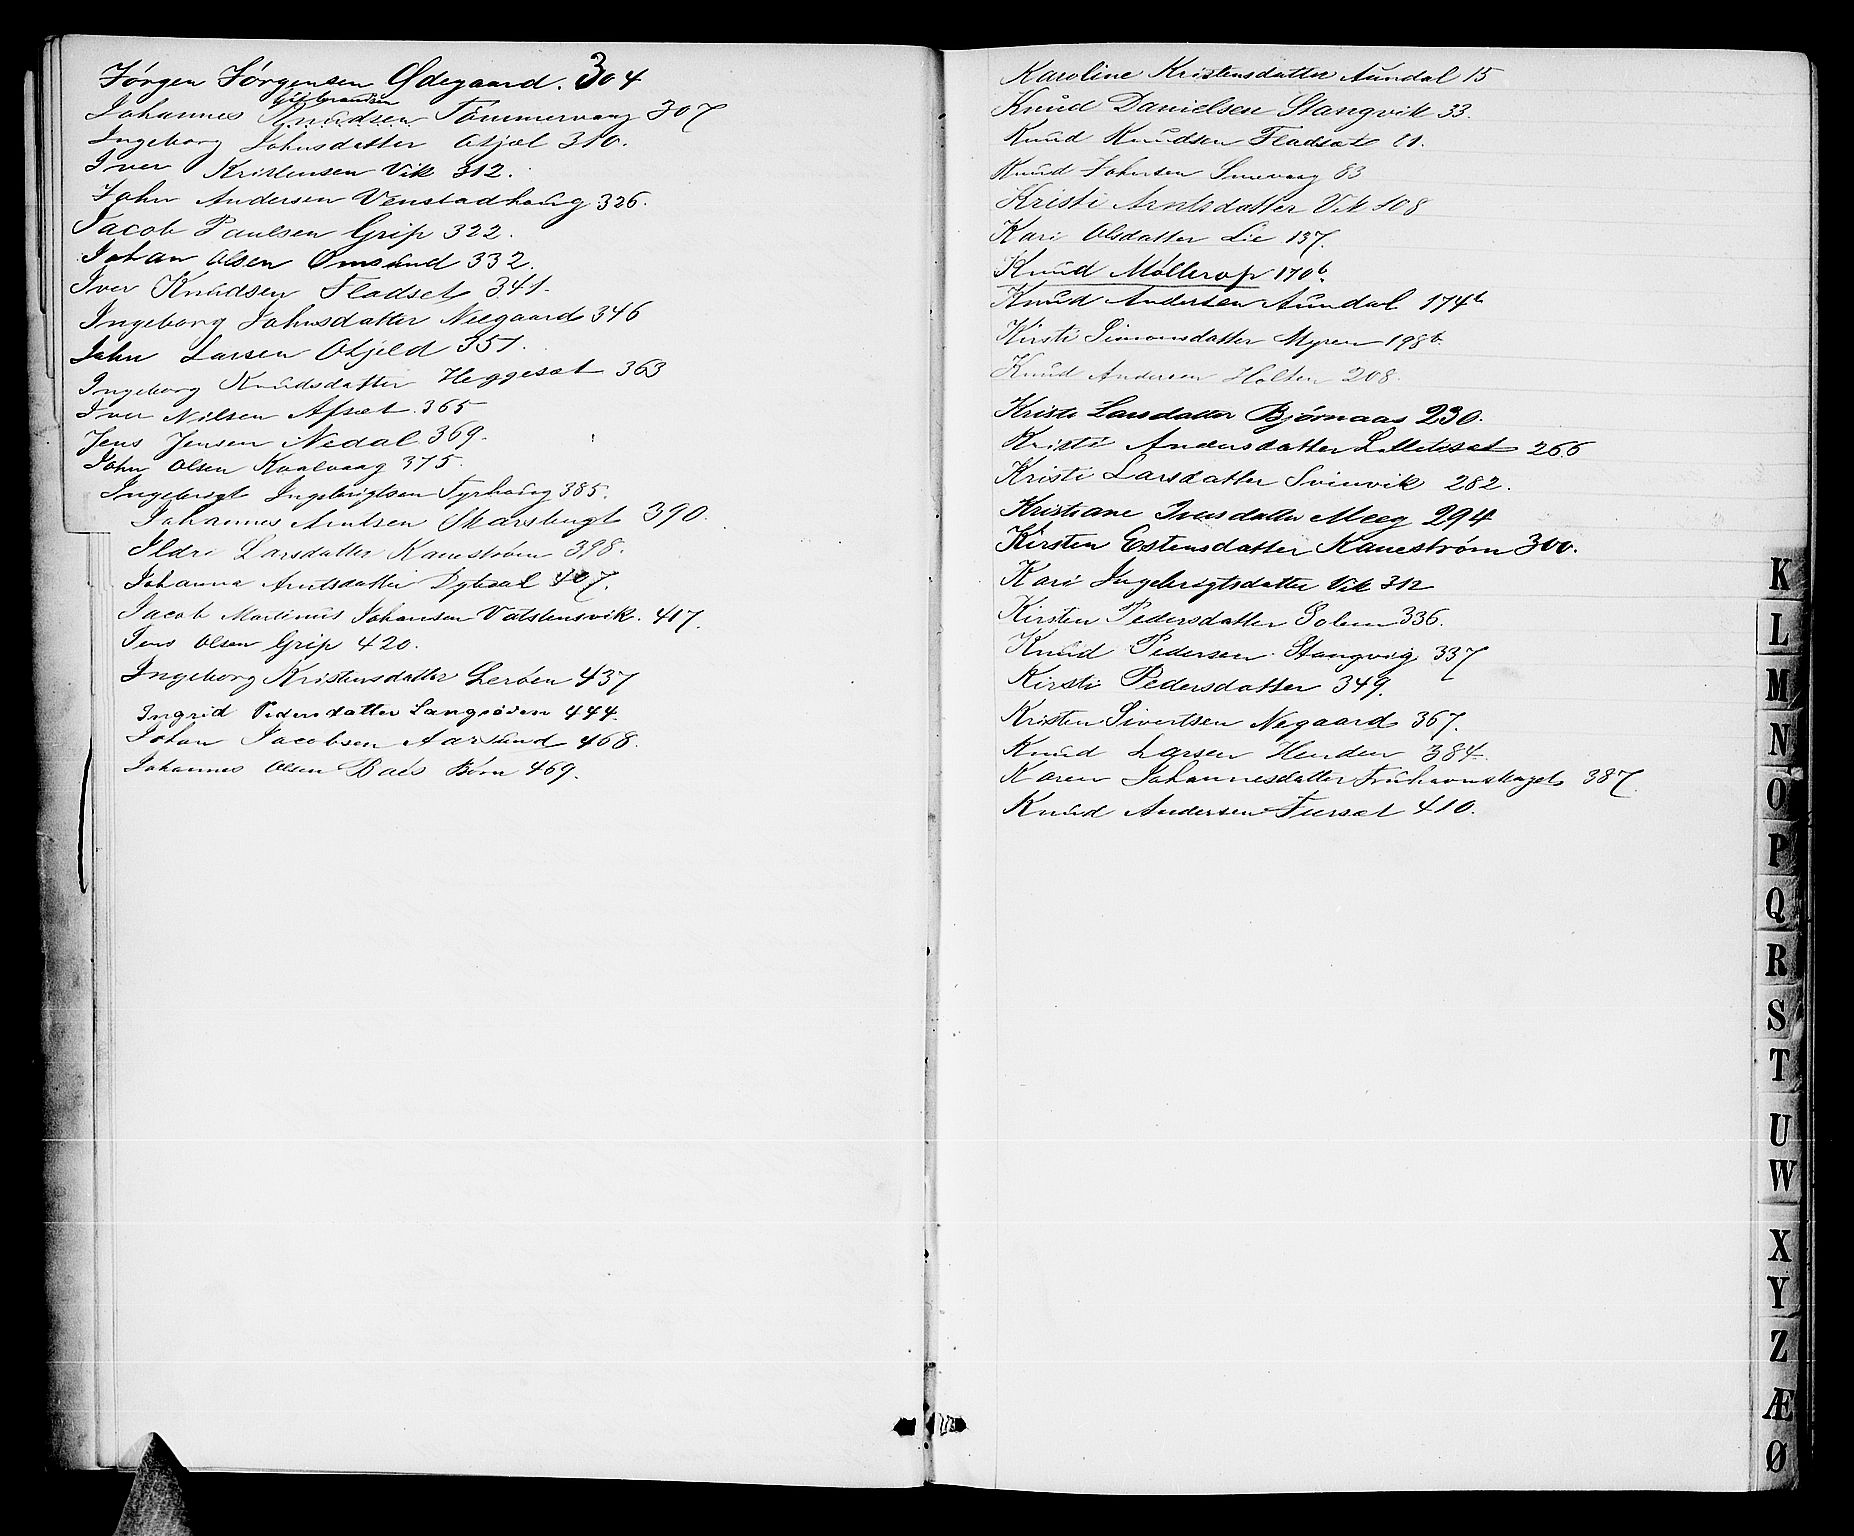 Jörgen Jörgensen Ødegaard. 304
Gulbrandsen
Johannes Knudsen Tömmervaag 307
Ingeborg Johnsdatter Otjæl 310.
Iver Kristensen Vik 312.
John Andersen Venstadhaug 326.
Jacob Paulsen Grip 322.
Johan Olsen Omsund 332.
Iver Knudsen Fladset 341.
Ingeborg Johnsdatter Neegaard 346
John Larsen Otjeld 351.
Ingeborg Knudsdatter Heggesæt 363
Iver Nilsen Afsæt 365
Jens Jensen Nedal 369.
John Olsen Kvalvaag 375.
Ingebrigt Ingebrigtsen Tyrhaug 385.
Johannes Arntsen Skarsbugt 390.
Ildri Larsdatter Kanestrøm 398.
Johanna Arntsdatter 407.
Jacob Martinus Johansen Vatstensvik. 417.
Jens Olsen Grip 420.
Ingeborg Kristensdatter Leröen 437
Ingrid Pedersdatter Langöien 444.
Johan Jacobsen Aarsund 468.
Johannes Olsen Baés Börn 469.
Karoline Kristensdatter Aundal 15
Knud Danielsen Stangvik 33.
Knud Knudsen Fladsæt 81.
Knud Johnsen Smevaag 83
Kristi Arntsdatter Vik 108
Kari Olsdatter Lie 137.
Knud Møllerop 170b.
Knud Andersen Aundal 174b
Kirsti Simonsdatter Myren 198b.
Knud Andersen Holten 208.
Kristi Larsdatter Bjørnaas 230.
Kristi Andersdatter Lilletsæt 266
Kristi Larsdatter Svinvik 282.
Kristiane Iversdatter Meeg 294
Kirsten Estensdatter Kanestrøm 300.
Kari Ingebrigtsdatter Vik 312
Kirsten Pedersdatter Solem 336.
Knud Pedersen Stangvig 337
Kirsti Pedersdatter 349.
Kristen Sivertsen Negaard 367.
Knud Larsen Henden 384.
Karen Johannesdatter Fruhavnskaget 387.
Knud Andersen Furset 410.
K
L
M
N
O
P
Q
R
S
T
U
W
X
Y
Z
Æ
Ø